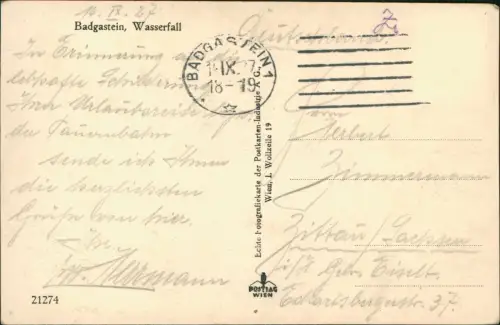 14. IX. 37
Badgastein, Wasserfall
In Erinnerung an die
lebhafte Schilderung
Ihrer Urlaubsreise
der Tauernbahn
sende ich Ihnen
die herzlichsten
Grüße von hier.
Ihr
Hermann
21274
BADGASTEIN 1
IX. 37
18-19
Echte Fotografiekarte der Postkarten-Industrie A. G.
Wien, I. Wollzeile 19
POSTIAG
WIEN
Deutschland.
Herrn
Herbert
Zimmermann
Zittau/Sachsen
Eckartsbergstr. 37